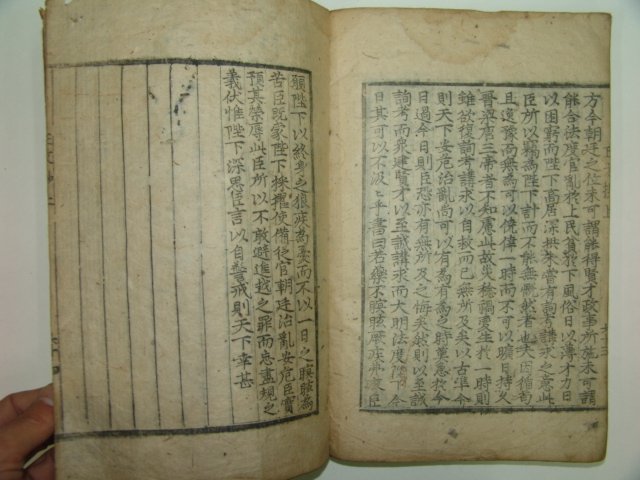 方今朝廷之位未可謂能得賢才政事所施未可謂
能合法度官亂於上民貧於下風俗日以薄才力日
以困窮而陛下高居深拱未嘗有詢考講求之意此
臣所以竊爲陛下計而不能無慨然者也夫因循苟
且逸豫而無爲可以僥倖一時而不可以曠日持久
晉梁唐三帝者不知慮此故災稔禍變生於一時則
雖欲復詢考講求以自救而已無所及矣以古準今
則天下安危治亂尚可以有爲有爲之時莫急於今
日過今日則臣恐亦有無所及之悔矣然則以至誠
詢考而衆建賢才以至誠講求而大明法度陛下今
日其可以不汲汲乎書曰若藥不瞑眩厥疾弗瘳臣
願陛下以終身之狼疾爲憂而不以一日之瞑眩爲
苦臣旣蒙陛下採擢使備從官朝廷治亂安危臣實
預其榮辱此臣所以不敢避進越之罪而忘盡規之
義伏惟陛下深思臣言以自警戒則天下幸甚